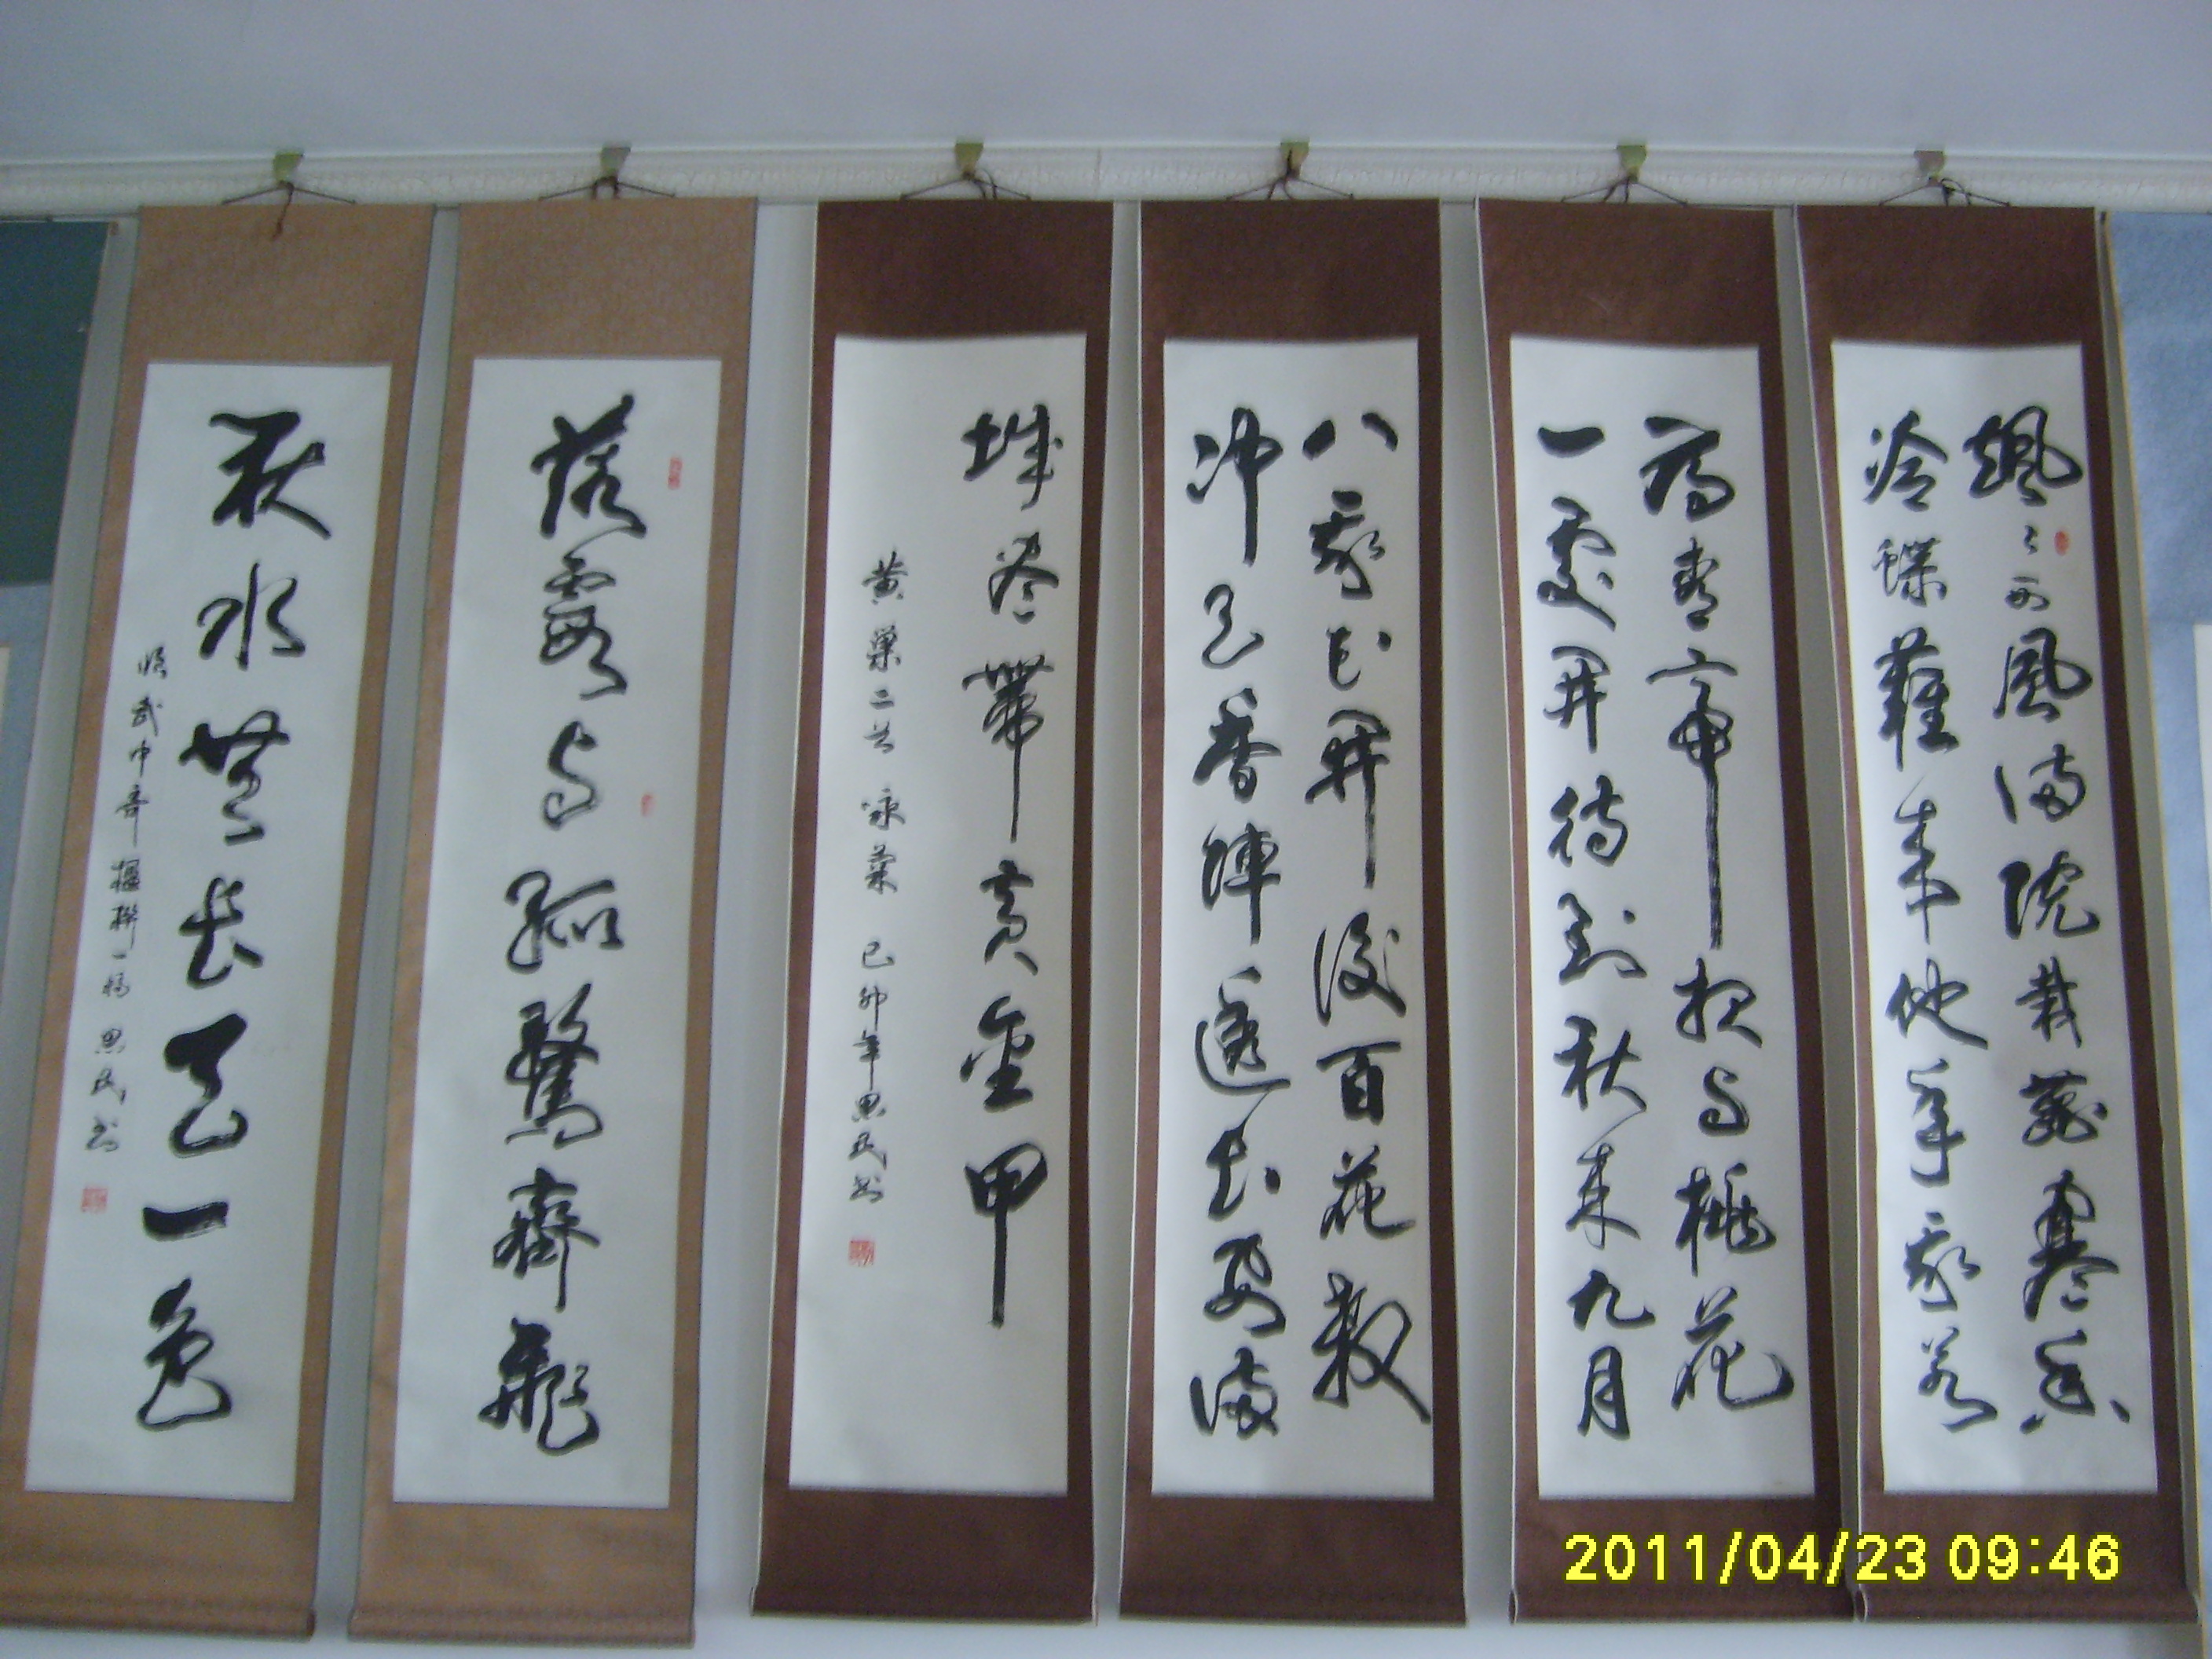 颯〻西風满院栽蕊寒香
冷蝶難来他年我若
为青帝报与桃花
一處开待到秋来九月
八我花開後百花殺
冲天香陣透长安满
城尽帶黄金甲
黄巢二首 咏菊 己卯年思民书
落霞与孤鶩齊飛
秋水共长天一色
临武中奇楹联一幅 思民书
2011/04/23 09:46